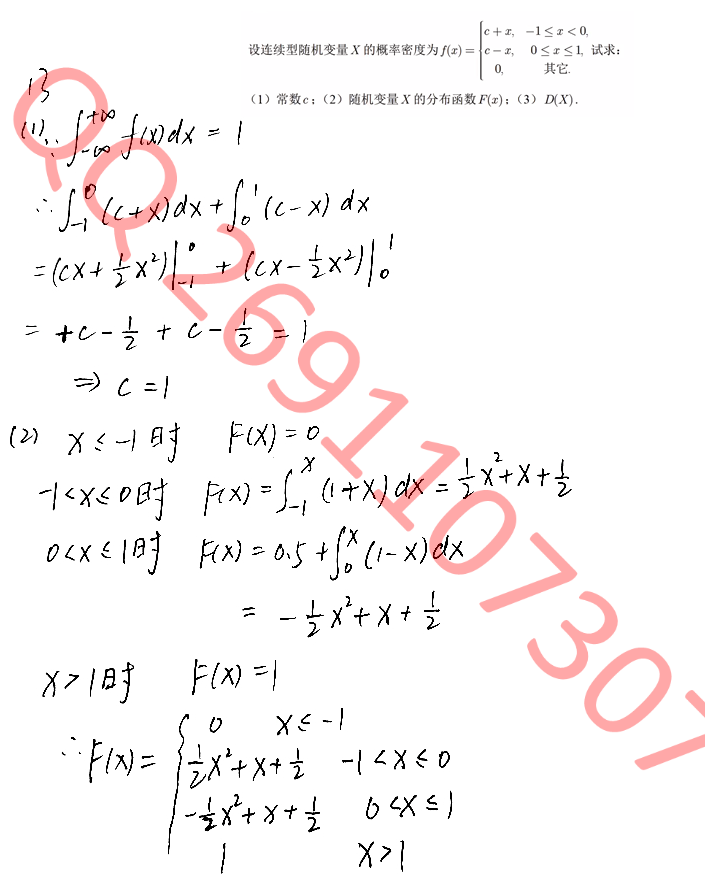 设连续型随机变量 X 的概率密度为 f(x) = { c + x, −1 ≤ x < 0,
c − x, 0 ≤ x ≤ 1, 试求:
0, 其它.
(1) 常数 c ; (2) 随机变量 X 的分布函数 F(x) ; (3) D(X) .
13
(1) ∵ ∫_{-∞}^{+∞} f(x)dx = 1
∴ ∫_{-1}^{0} (c+x)dx + ∫_{0}^{1} (c-x) dx
= (cx + 1/2 x²)|_{-1}^{0} + (cx - 1/2 x²)|_{0}^{1}
= +c - 1/2 + c - 1/2 = 1
⇒ c = 1
(2) x ≤ -1时 F(x) = 0
-1 < x ≤ 0时 F(x) = ∫_{-1}^{x} (1+x) dx = 1/2 x² + x + 1/2
0 < x ≤ 1时 F(x) = 0.5 + ∫_{0}^{x} (1-x) dx
= - 1/2 x² + x + 1/2
x > 1时 F(x) = 1
∴ F(x) = { 0 x ≤ -1
1/2 x² + x + 1/2 -1 < x ≤ 0
- 1/2 x² + x + 1/2 0 < x ≤ 1
1 x > 1
QQ 2691107307